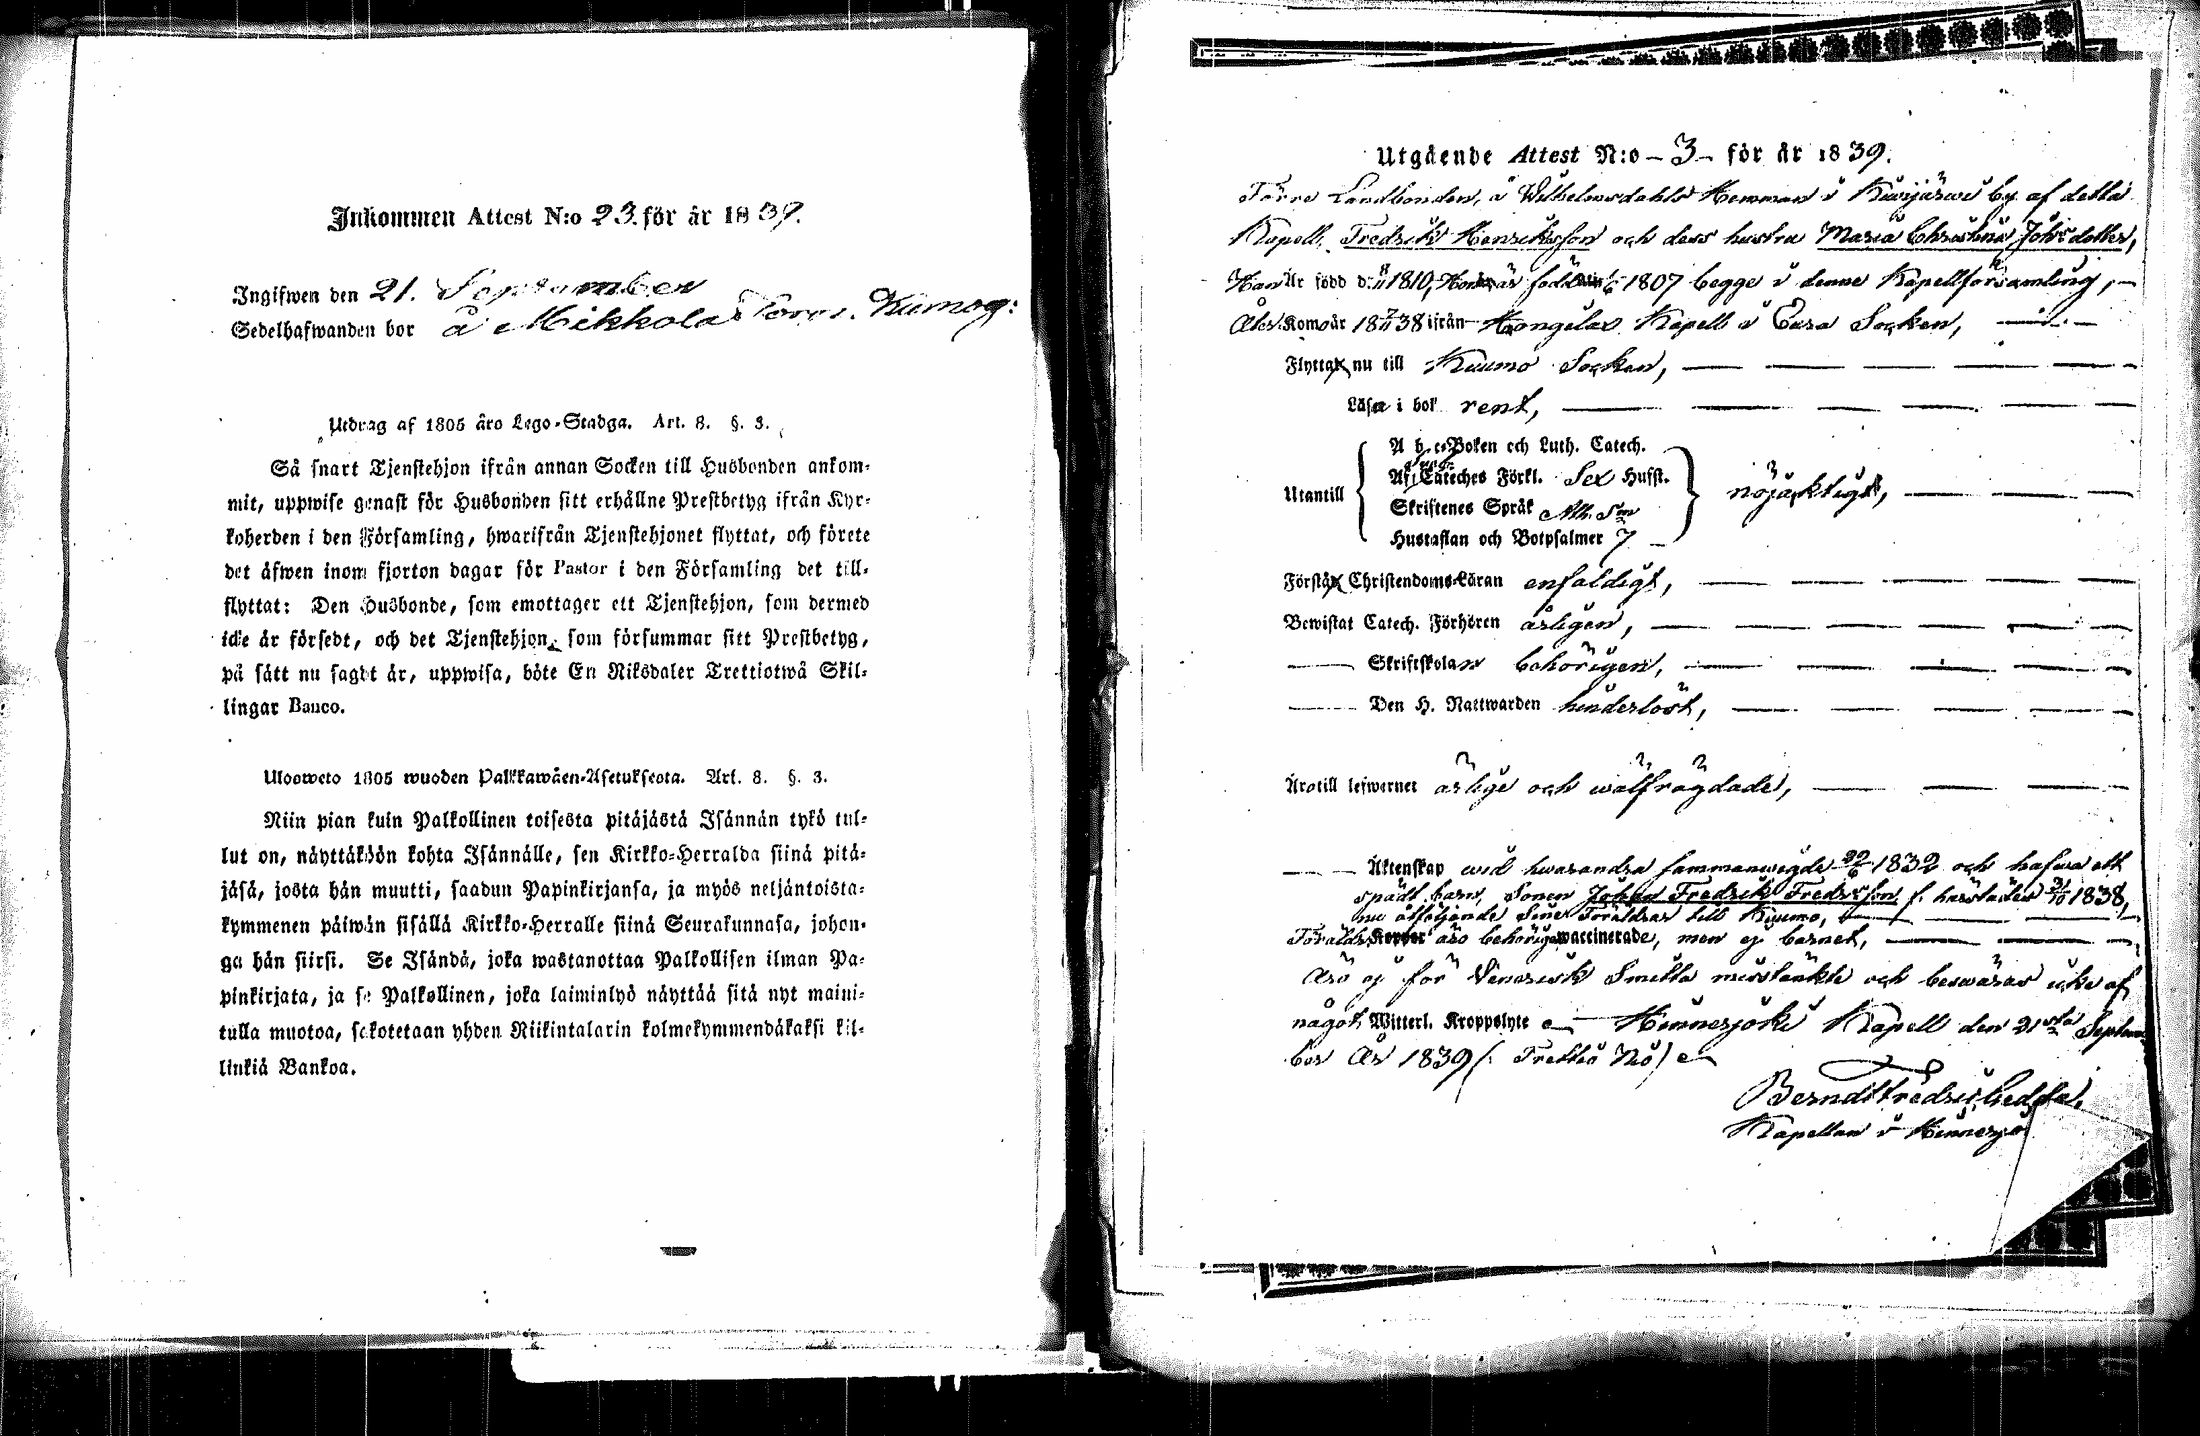 Inkommen Attest N:o 23. för år 1839.
Ingifwen den 21. September
Sedelhafwanden bor å Mikkola Kumog:
Utdrag af 1805 års Lego-Stadga. Art. 8. §. 3.
Så snart Tjenstehjon ifrån annan Socken till Husbonden ankom-
mit, uppwise genast för Husbonden sitt erhållne Prestbetyg ifrån Kyr-
koherden i den Församling, hwarifrån Tjenstehjonet flyttat, och förete
det äfwen inom fjorton dagar för Pastor i den Församling det till-
flyttat: Den Husbonde, som emottager ett Tjenstehjon, som dermed
icke är försedt, och det Tjenstehjon, som försummar sitt Prestbetyg,
på sätt nu sagdt är, uppwisa, böte En Riksdaler Trettiotwå Skil-
lingar Banco.
Ulosweto 1805 wuoden Palkkawäen-Asetuksesta. Art. 8. §. 3.
Niin pian kuin Palkollinen toisesta pitäjästä Isännän tykö tul-
lut on, näyttäköön kohta Isännälle, sen Kirkko-Herralda siinä pitä-
jäsä, josta hän muutti, saadun Papinkirjansa, ja myös neljäntoista-
kymmenen päiwän sisällä Kirkko-Herralle siinä Seurakunnasa, johon-
ga hän siirsi. Se Isändä, joka wastanottaa Palkollisen ilman Pa-
pinkirjata, ja se Palkollinen, joka laiminlyö näyttää sitä nyt maini-
tulla muotoa, sakotetaan yhden Riikintalarin kolmekymmendäkaksi kil-
linkiä Bankoa.
Utgående Attest N:o - 3 - för år 1839.
Förre Landbonden, å Wilhelmsdahls Hemman i Kiwijärwi by af detta
Kapell, Fredrik Henriksson och dess hustru Maria Christina Johsdotter,
Han Är född d. 1810, Hon är född 1807 begge i denne Kapellförsamling,
Åter Komo år 1838 ifrån Hongilax Kapell i Eura Socken,
Flytta nu till Kiumo Socken,
Läsa i bok rent,
A b c-Boken och Luth. Catech.
Af Cateches Förkl. Sex Husst.
Utantill Skriftenes Språk Ath. Sm nöjacktigt,
Hustaflan och Botpsalmer 7
Förstå Christendoms-Läran enfaldigt,
Bewistat Catech. Förhören årligen,
Skriftskolan behörigen,
Den H. Nattwarden hinderlöst,
Äro till lefwernet ärlige och wälfrägdade,
Äktenskap wid hwarandra sammanwigde 1832 och hafwa ett
spädt barn, Sonen Johan Fredrik Fredrsson f. härstädes 1838,
nu åtföljande Sine Föräldrar till Kiumo,
Föräldr. äro behörigen vaccinerade, men ej barnet,
Äro ej för Venerisk Smitta misstänkte och beswäras icke af
något Witterl. Kroppslyte Hinnerjoki Kapell den 21sta Septem
ber År 1839 (: Trettio Nio)
Kapellan i Hinnerjo